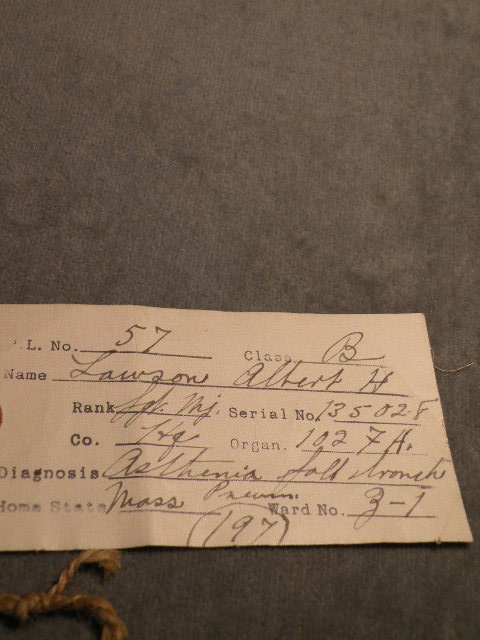 .L. No. 57 Class B
Name Lawson Albert H
Rank Sgt. Mj. Serial No. 135028
Co. Hq Organ. 102 F A.
Diagnosis Asthenia foll bronch
Pneum.
Home State Mass Ward No. 3-1
(197)